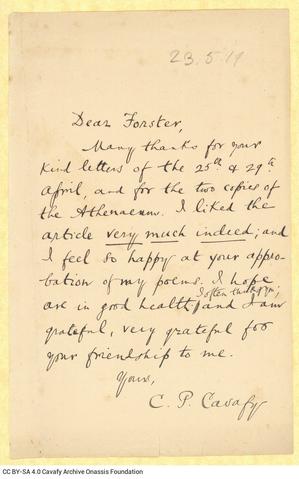 23.5.19
Dear Forster,
Many thanks for your
kind letters of the 25th & 29th
April, and for the two copies of
the Athenaeum. I liked the
article very much indeed; and
I feel so happy at your appro-
bation of my poems. I hope
I often think of you;
are in good health, and I am
grateful, very grateful for
your friendship to me.
Yours,
C. P. Cavafy
CC BY-SA 4.0 Cavafy Archive Onassis Foundation